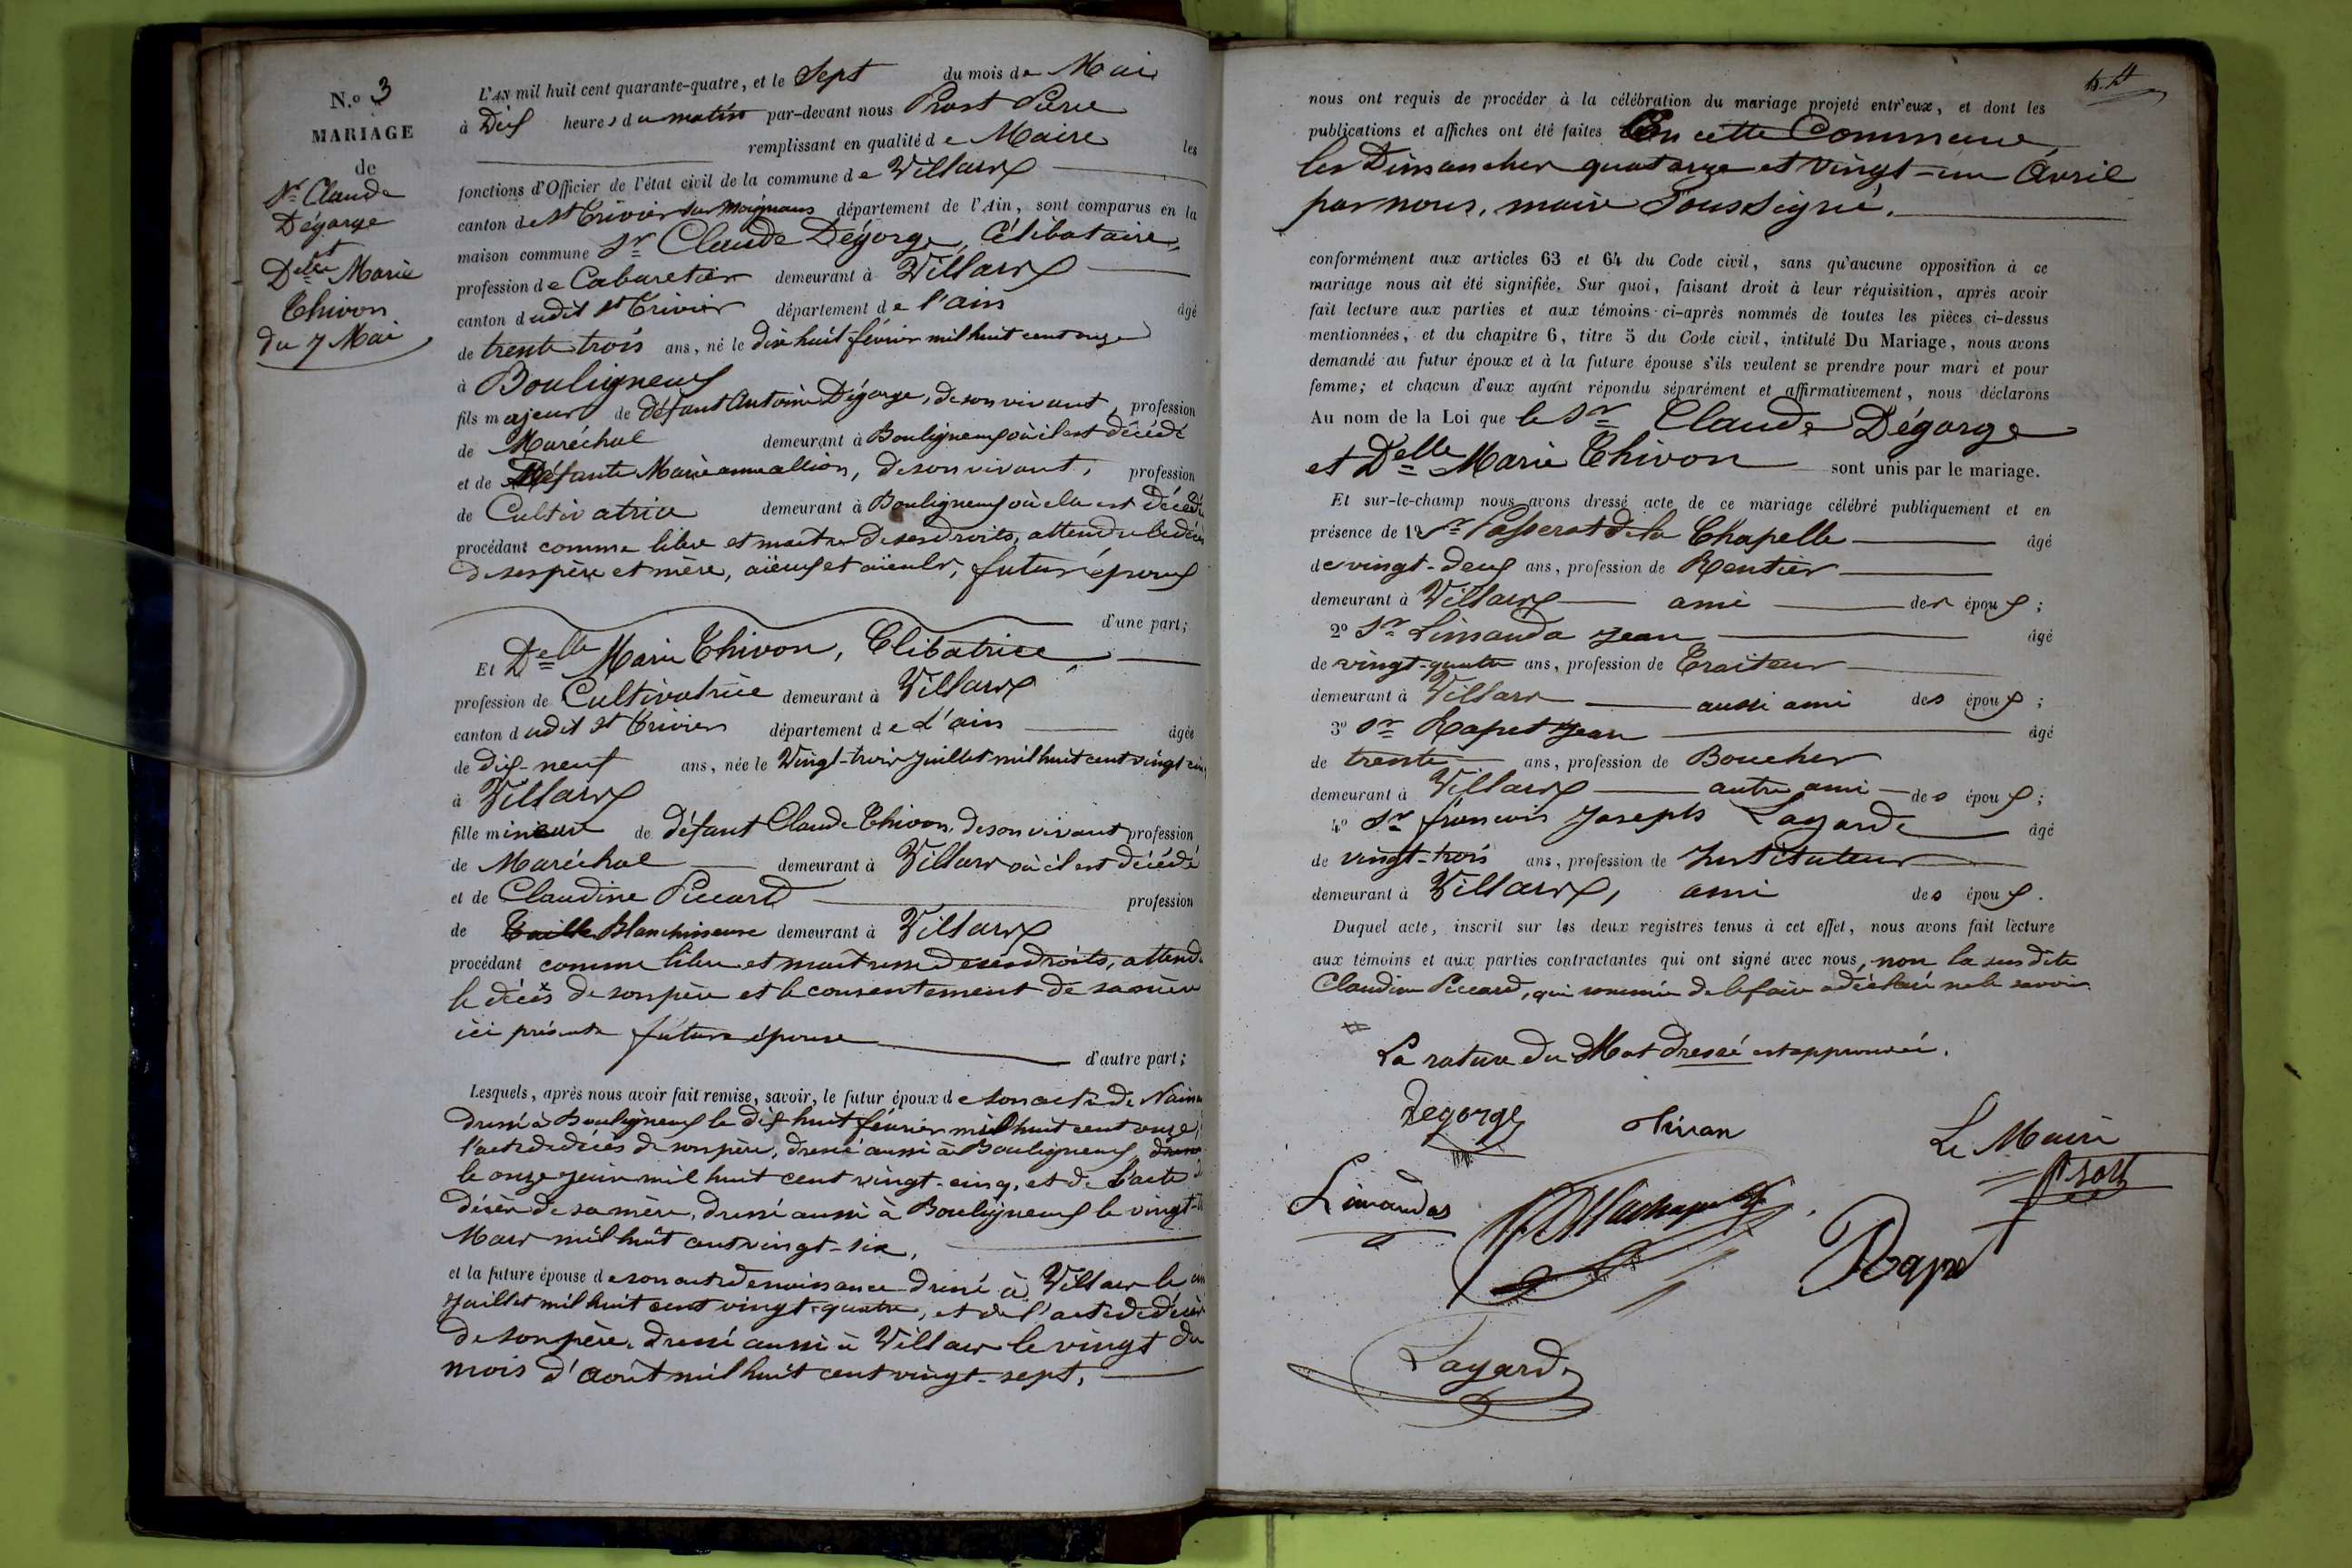 N.o 3
MARIAGE
de
Sr Claude
Dégorge
et
Delle Marie
Thivon
du 7 Mai
L'AN mil huit cent quarante-quatre, et le Sept du mois de Mai
à Dix heures du matin par-devant nous Prost Pierre
remplissant en qualité de Maire les
fonctions d'Officier de l'état civil de la commune de Villars
canton de St Trivier sur Moignans département de l'Ain, sont comparus en la
maison commune Sr Claude Dégorge, Célibataire,
profession de Cabaretier demeurant à Villars
canton dudit St Trivier département de l'ain âgé
de trente trois ans, né le dix huit février mil huit cent onze
à Bouligneux
fils majeur de défunt Antoine Dégorge, de son vivant, profession
de Maréchal demeurant à Bouligneux où il est décédé
et de défunte Marie anne allion, de son vivant, profession
de Cultivatrice demeurant à Bouligneux où elle est décédée
procédant comme libre et maitre de ses droits, attendu le décès
de ses père et mère, aïeux et aïeules, futur époux
d'une part;
Et Delle Marie Thivon, Clibatrice
profession de Cultivatrice demeurant à Villars
canton dudit St Trivier département de l'ain âgée
de dix-neuf ans, née le Vingt-trois Juillet mil huit cent vingt
à Villars
fille mineure de défunt Claude Thivon, de son vivant profession
de Maréchal demeurant à Villars où il est décédé
et de Claudine Piccard profession
de Taille Blanchisseuse demeurant à Villars
procédant comme libre et maitresse de ses droits, attendu
le décès de son père et le consentement de sa mère
ici présente future épouse
d'autre part;
Lesquels, après nous avoir fait remise, savoir, le futur époux de son acte de
dressé à Bouligneux le dix huit février mil huit cent onze,
l'acte de décès de son père, dressé aussi à Bouligneux dressé
le onze juin mil huit cent vingt-cinq, et de l'acte
décès de sa mère, dressé aussi à Bouligneux le vingt-
Mars mil huit cent vingt-six,
et la future épouse de son acte de naissance dressé à Villars le
Juillet mil huit cent vingt-quatre, et de l'acte de décès
de son père, dressé aussi à Villars le vingt du
mois d'août mil huit cent vingt-sept.
nous ont requis de procéder à la célébration du mariage projeté entr'eux, et dont les
publications et affiches ont été faites En cette Commune,
les Dimanches quatorze et vingt-un Avril
par nous, maire Soussigné.
conformément aux articles 63 et 64 du Code civil, sans qu'aucune opposition à ce
mariage nous ait été signifiée. Sur quoi, faisant droit à leur réquisition, après avoir
fait lecture aux parties et aux témoins ci-après nommés de toutes les pièces ci-dessus
mentionnées, et du chapitre 6, titre 5 du Code civil, intitulé Du Mariage, nous avons
demandé au futur époux et à la future épouse s'ils veulent se prendre pour mari et pour
femme; et chacun d'eux ayant répondu séparément et affirmativement, nous déclarons
Au nom de la Loi que le Sr Claude Dégorge
et Delle Marie Thivon sont unis par le mariage.
Et sur-le-champ nous avons dressé acte de ce mariage célébré publiquement et en
présence de 1º Sr Passerat de la Chapelle âgé
de vingt-deux ans, profession de Rentier
demeurant à Villars ami des époux;
2º Sr Limanda Jean âgé
de vingt-quatre ans, profession de Traiteur
demeurant à Villars aussi ami des époux;
3º Sr Rapet Jean âgé
de trente ans, profession de Boucher
demeurant à Villars autre ami des époux;
4º Sr françois Joseph Lagarde âgé
de vingt-trois ans, profession de Instituteur
demeurant à Villars, ami des époux.
Duquel acte, inscrit sur les deux registres tenus à cet effet, nous avons fait lecture
aux témoins et aux parties contractantes qui ont signé avec nous, non la susdite
Claudine Piccard, qui sommée de le faire a déclaré ne le savoir.
La rature du Mot dressé est approuvée.
Degorge
Le Maire
Prost
Limandas
Rapet
Lagarde